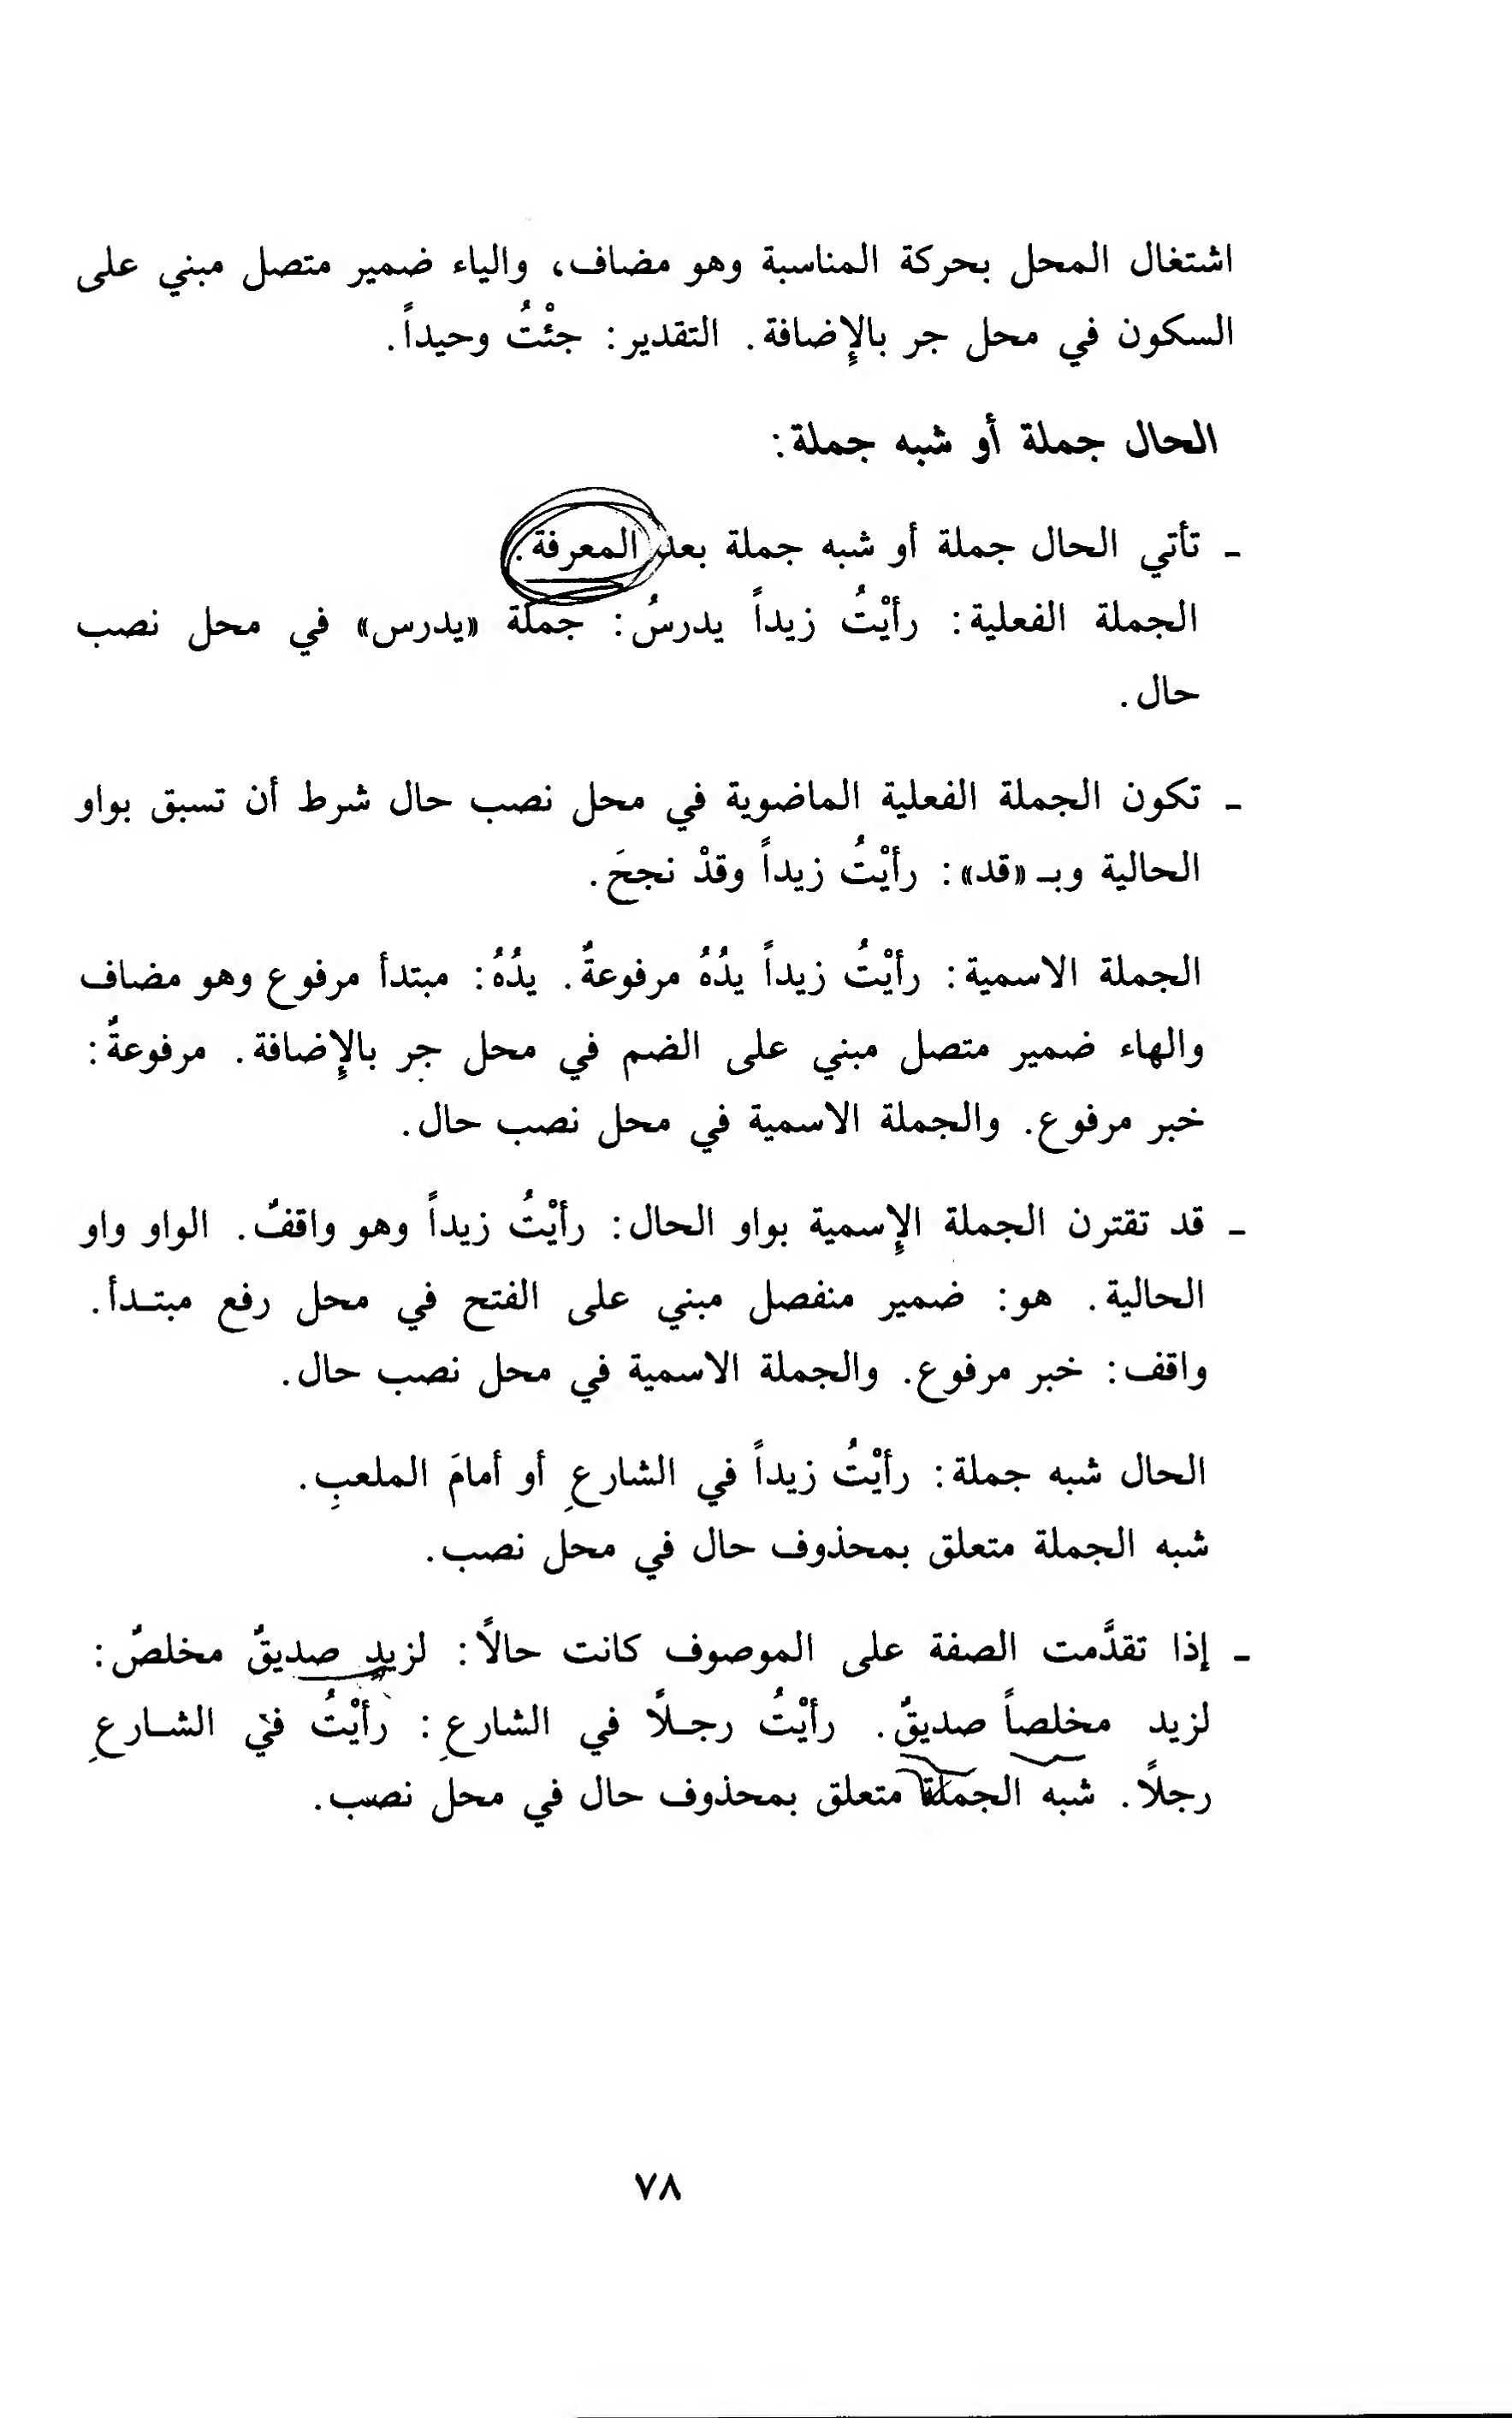 اشتغال المحل بحركة المناسبة وهو مضاف، والياء ضمير متصل مبني على
السكون في محل جر بالإضافة. التقدير: جئْتُ وحيداً.
الحال جملة أو شبه جملة:
ـ تأتي الحال جملة أو شبه جملة بعد المعرفة.
الجملة الفعلية: رأيْتُ زيداً يدرسُ: جملة «يدرس» في محل نصب
حال.
ـ تكون الجملة الفعلية الماضوية في محل نصب حال شرط أن تسبق بواو
الحالية وبـ «قد»: رأيْتُ زيداً وقدْ نجحَ.
الجملة الاسمية: رأيْتُ زيداً يدُهُ مرفوعةٌ. يدُهُ: مبتدأ مرفوع وهو مضاف
والهاء ضمير متصل مبني على الضم في محل جر بالإضافة. مرفوعةٌ:
خبر مرفوع. والجملة الاسمية في محل نصب حال.
ـ قد تقترن الجملة الإسمية بواو الحال: رأيْتُ زيداً وهو واقفٌ. الواو واو
الحالية. هو: ضمير منفصل مبني على الفتح في محل رفع مبتـدأ.
واقف: خبر مرفوع. والجملة الاسمية في محل نصب حال.
الحال شبه جملة: رأيْتُ زيداً في الشارعِ أو أمامَ الملعبِ.
شبه الجملة متعلق بمحذوف حال في محل نصب.
ـ إذا تقدَّمت الصفة على الموصوف كانت حالًا: لزيدٍ صديقٌ مخلصٌ:
لزيد مخلصاً صديقٌ. رأيْتُ رجـلًا في الشارعِ: رأيْتُ في الشـارعِ
رجلًا. شبه الجملة متعلق بمحذوف حال في محل نصب.
٧٨